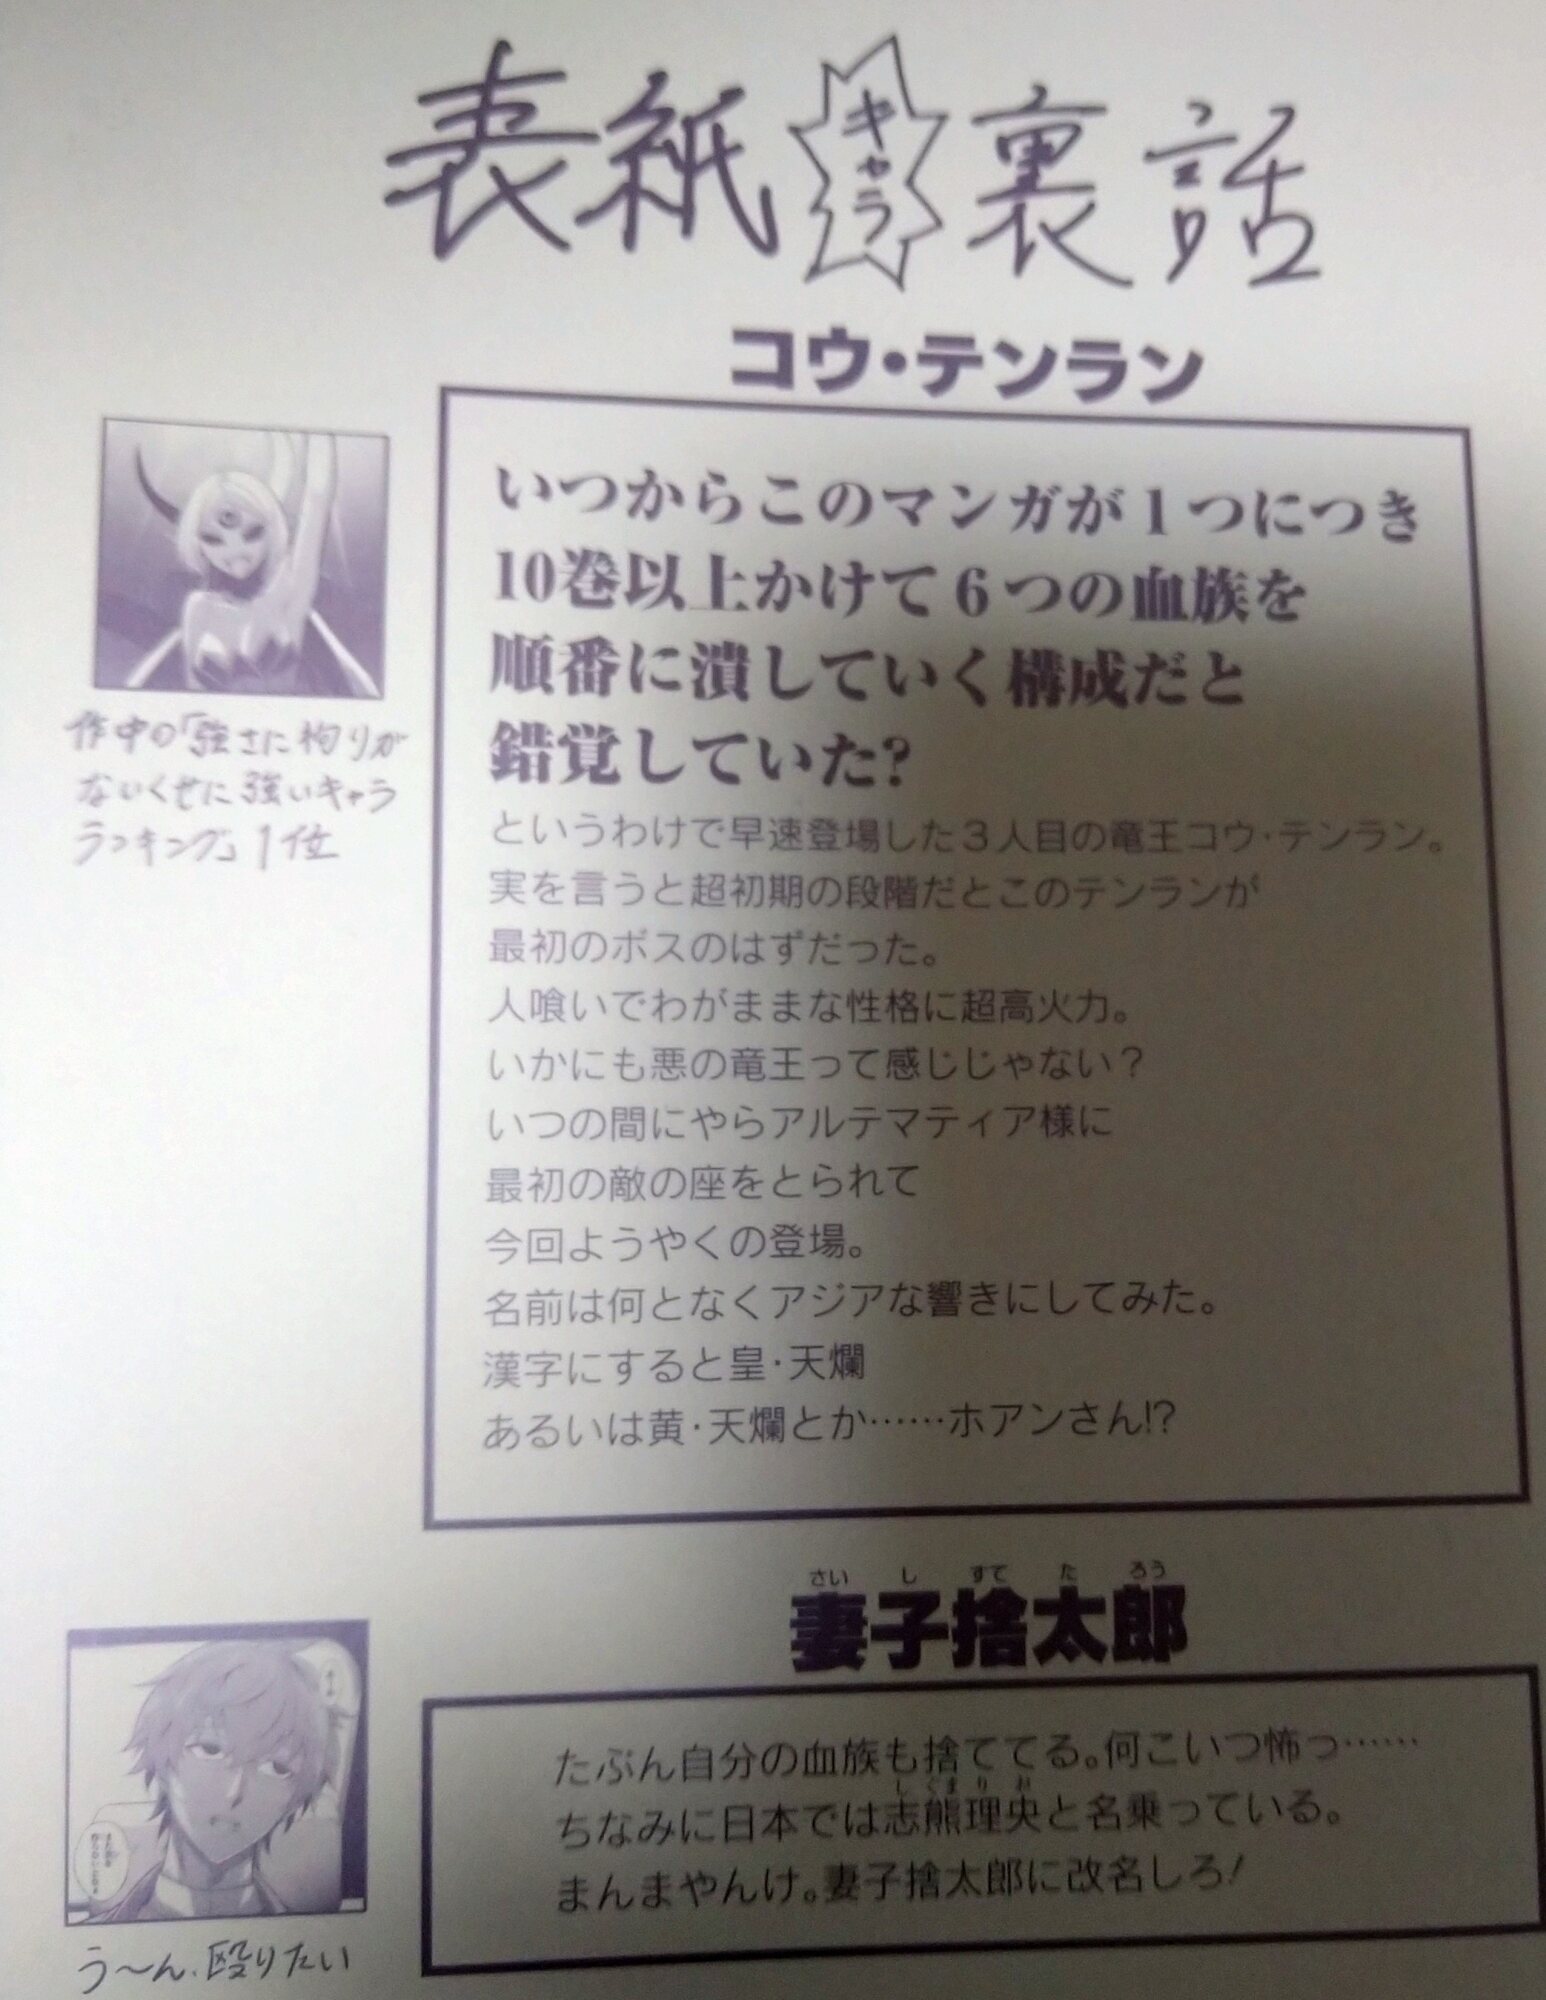 表紙キャラ裏話
コウ・テンラン
いつからこのマンガが1つにつき
10巻以上かけて6つの血族を
順番に潰していく構成だと
錯覚していた?
というわけで早速登場した3人目の竜王コウ・テンラン。
実を言うと超初期の段階だとこのテンランが
最初のボスのはずだった。
人喰いでわがままな性格に超高火力。
いかにも悪の竜王って感じじゃない?
いつの間にやらアルテマティア様に
最初の敵の座をとられて
今回ようやくの登場。
名前は何となくアジアな響きにしてみた。
漢字にすると皇・天爛
あるいは黄・天爛とか……ホアンさん!?
作中の「強さに拘りが
ないくせに強いキャラ
ランキング」1位
さいしすてたろう
妻子捨太郎
たぶん自分の血族も捨ててる。何こいつ怖っ……
しぐまりお
ちなみに日本では志熊理央と名乗っている。
まんまやんけ。妻子捨太郎に改名しろ!
う〜ん、殴りたい